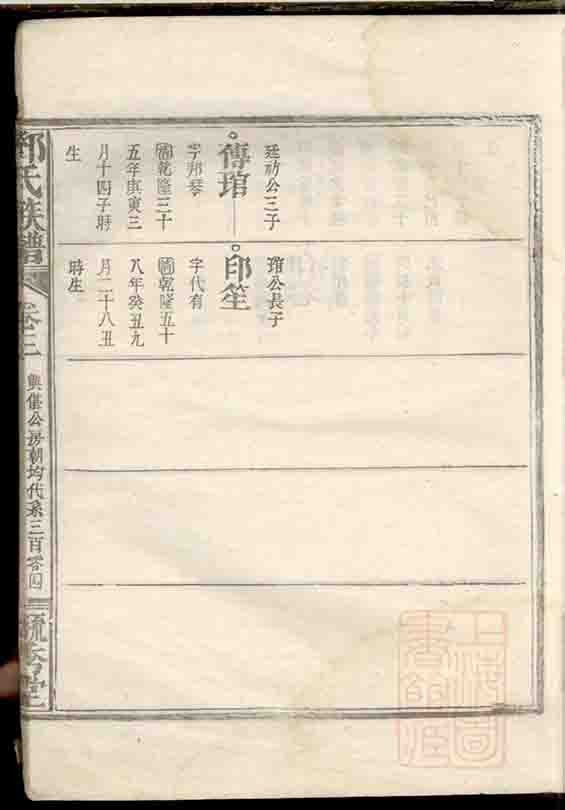 廷礽公三子
傳琯
字邦琴
國乾隆三十
五年庚寅三
月十四子時
生
琯公長子
印笙
字代有
國乾隆五十
八年癸丑九
月二十八丑
時生
氏族譜
卷三
興佐公房朝均代系三百零四
毓香堂
上海圖
書館藏